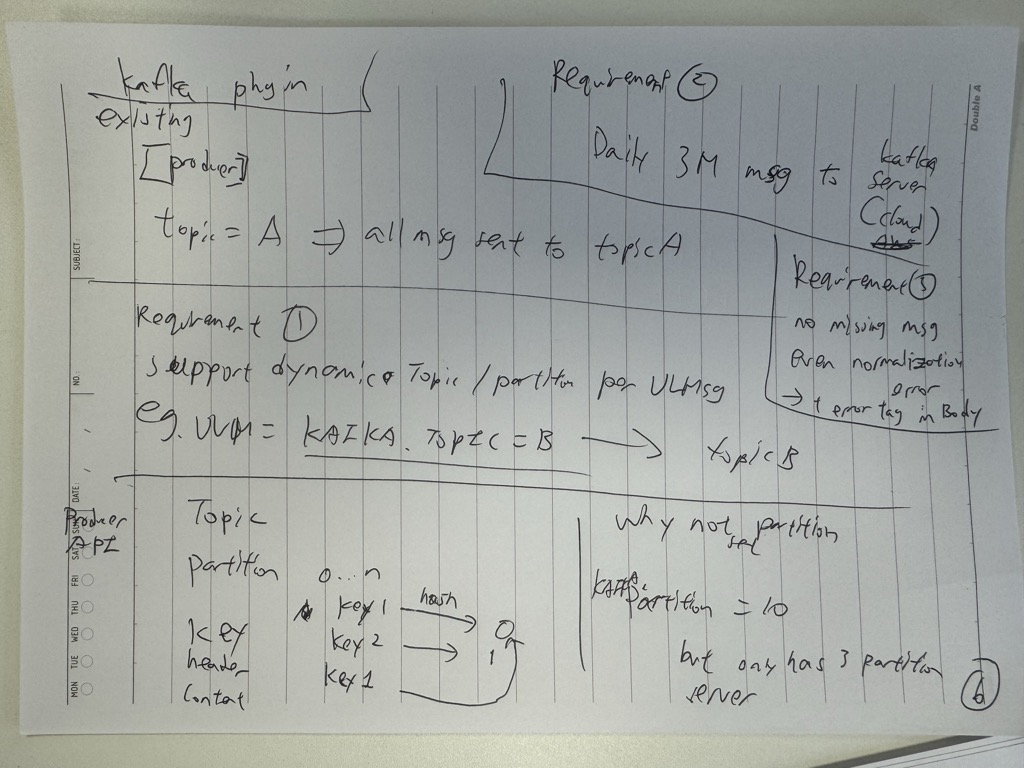 Kafka plugin
existing
[producer]
topic = A => all msg sent to topic A
Requirement ②
Daily 3M msg to kafka
server
(cloud)
Requirement ③
no missing msg
even normalization
error
→ + error tag in Body
Requirement ①
support dynamic Topic / partition per ULMsg
eg. ULM = KAFKA.TOPIC = B → topic B
Producer
API
Topic
partition 0...n
key 1 hash 0
key key 2 1
header key 1
content
why not set partition
partition = 10
but only has 3 partition
server
6
SUBJECT:
NO:
DATE:
MON TUE WED THU FRI SAT SUN
Double A